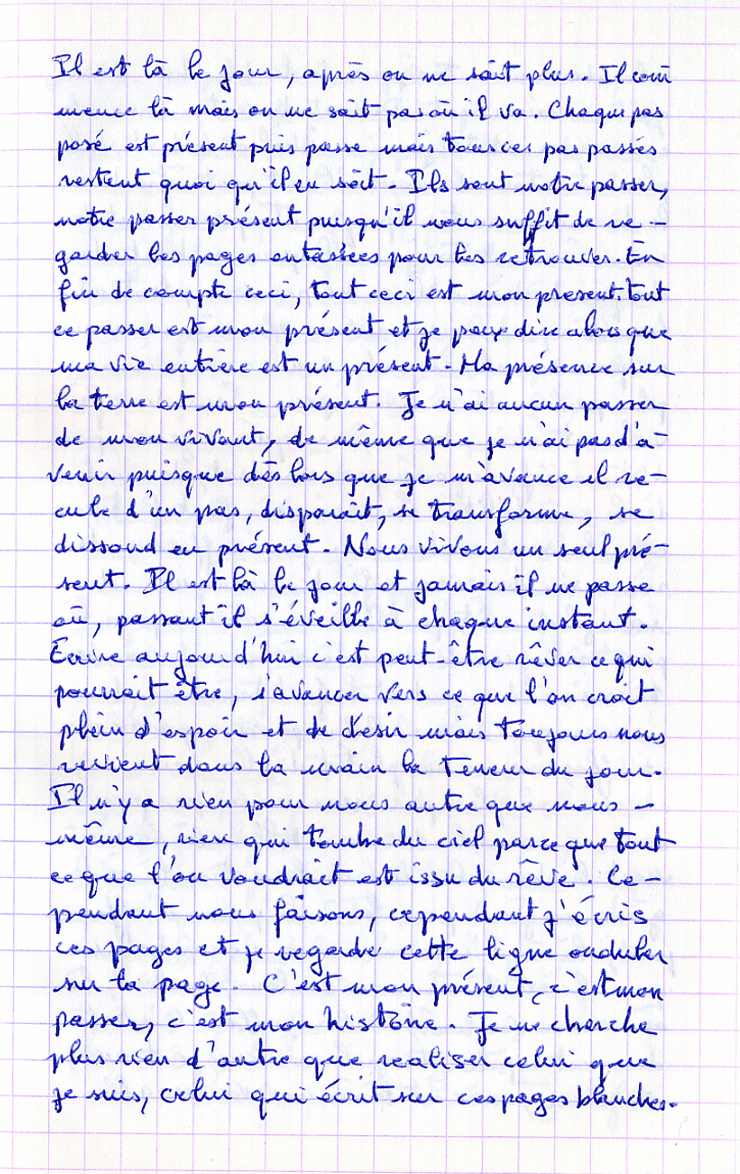 Il est là le jour, après on ne sait plus. Il com
mence là mais on ne sait pas où il va. Chaque pas
posé est présent puis passe mais tous ces pas passés
restent quoi qu'il en soit. Ils sont notre passer,
notre passer présent puisqu'il nous suffit de re-
garder les pages entassées pour les retrouver. En
fin de compte ceci, tout ceci est mon present. tout
ce passer est mon présent et je peux dire alors que
ma vie entière est un présent. Ma présence sur
la terre est mon présent. Je n'ai aucun passer
de mon vivant, de même que je n'ai pas d'a-
venir puisque dès lors que je m'avance il re-
cule d'un pas, disparaît, se transforme, se
dissond en présent. Nous vivons un seul pré-
sent. Il est là le jour et jamais il ne passe
où, passant il s'éveille à chaque instant.
Ecrire aujourd'hui c'est peut-être rêver ce qui
pourrait être, s'avancer vers ce que l'on croit
plein d'espoir et de desir mais toujours nous
revient dans la main la teneur du jour.
Il n'y a rien pour nous autre que nous-
même, rien qui tombe du ciel parce que tout
ce que l'on voudrait est issu du rêve. Ce-
pendant nous faisons, cependant j'écris
ces pages et je regarde cette ligne onduler
sur la page. C'est mon présent, c'est mon
passer, c'est mon histoire. Je ne cherche
plus rien d'autre que realiser celui que
je suis, celui qui écrit sur ces pages blanches.